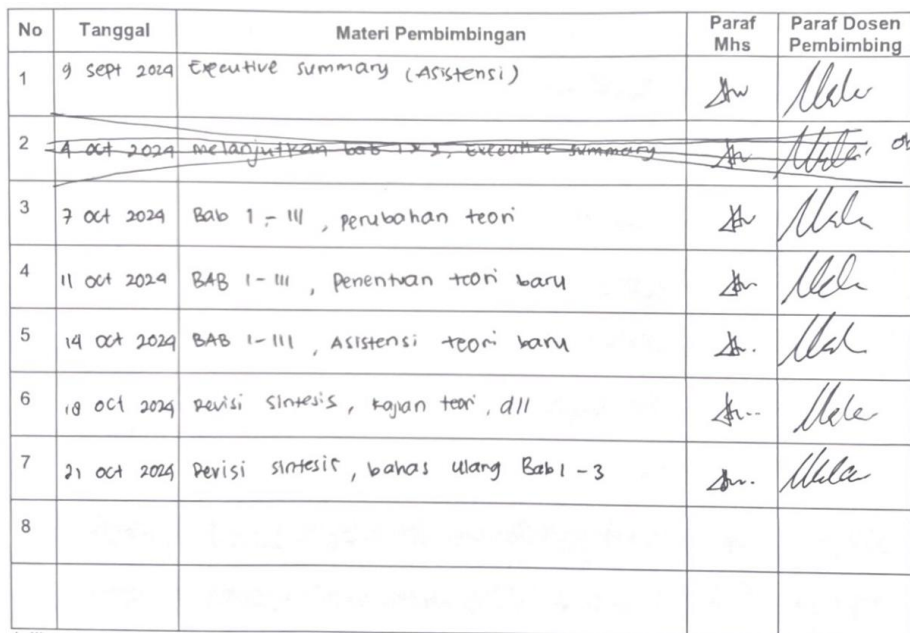 No Tanggal Materi Pembimbingan Paraf Mhs Paraf Dosen Pembimbing
1 9 sept 2024 Executive summary (Asistensi)
2 4 oct 2024 melanjutkan bab 1 & 2, Executive summary
3 7 oct 2024 Bab 1 - III, perubahan teori
4 11 oct 2024 BAB 1 - III, Penentuan teori baru
5 14 oct 2024 BAB 1 - III, Asistensi teori baru
6 18 oct 2024 Revisi sintesis, kajian teori, dll
7 21 oct 2024 Revisi sintesis, bahas ulang Bab 1 - 3
8